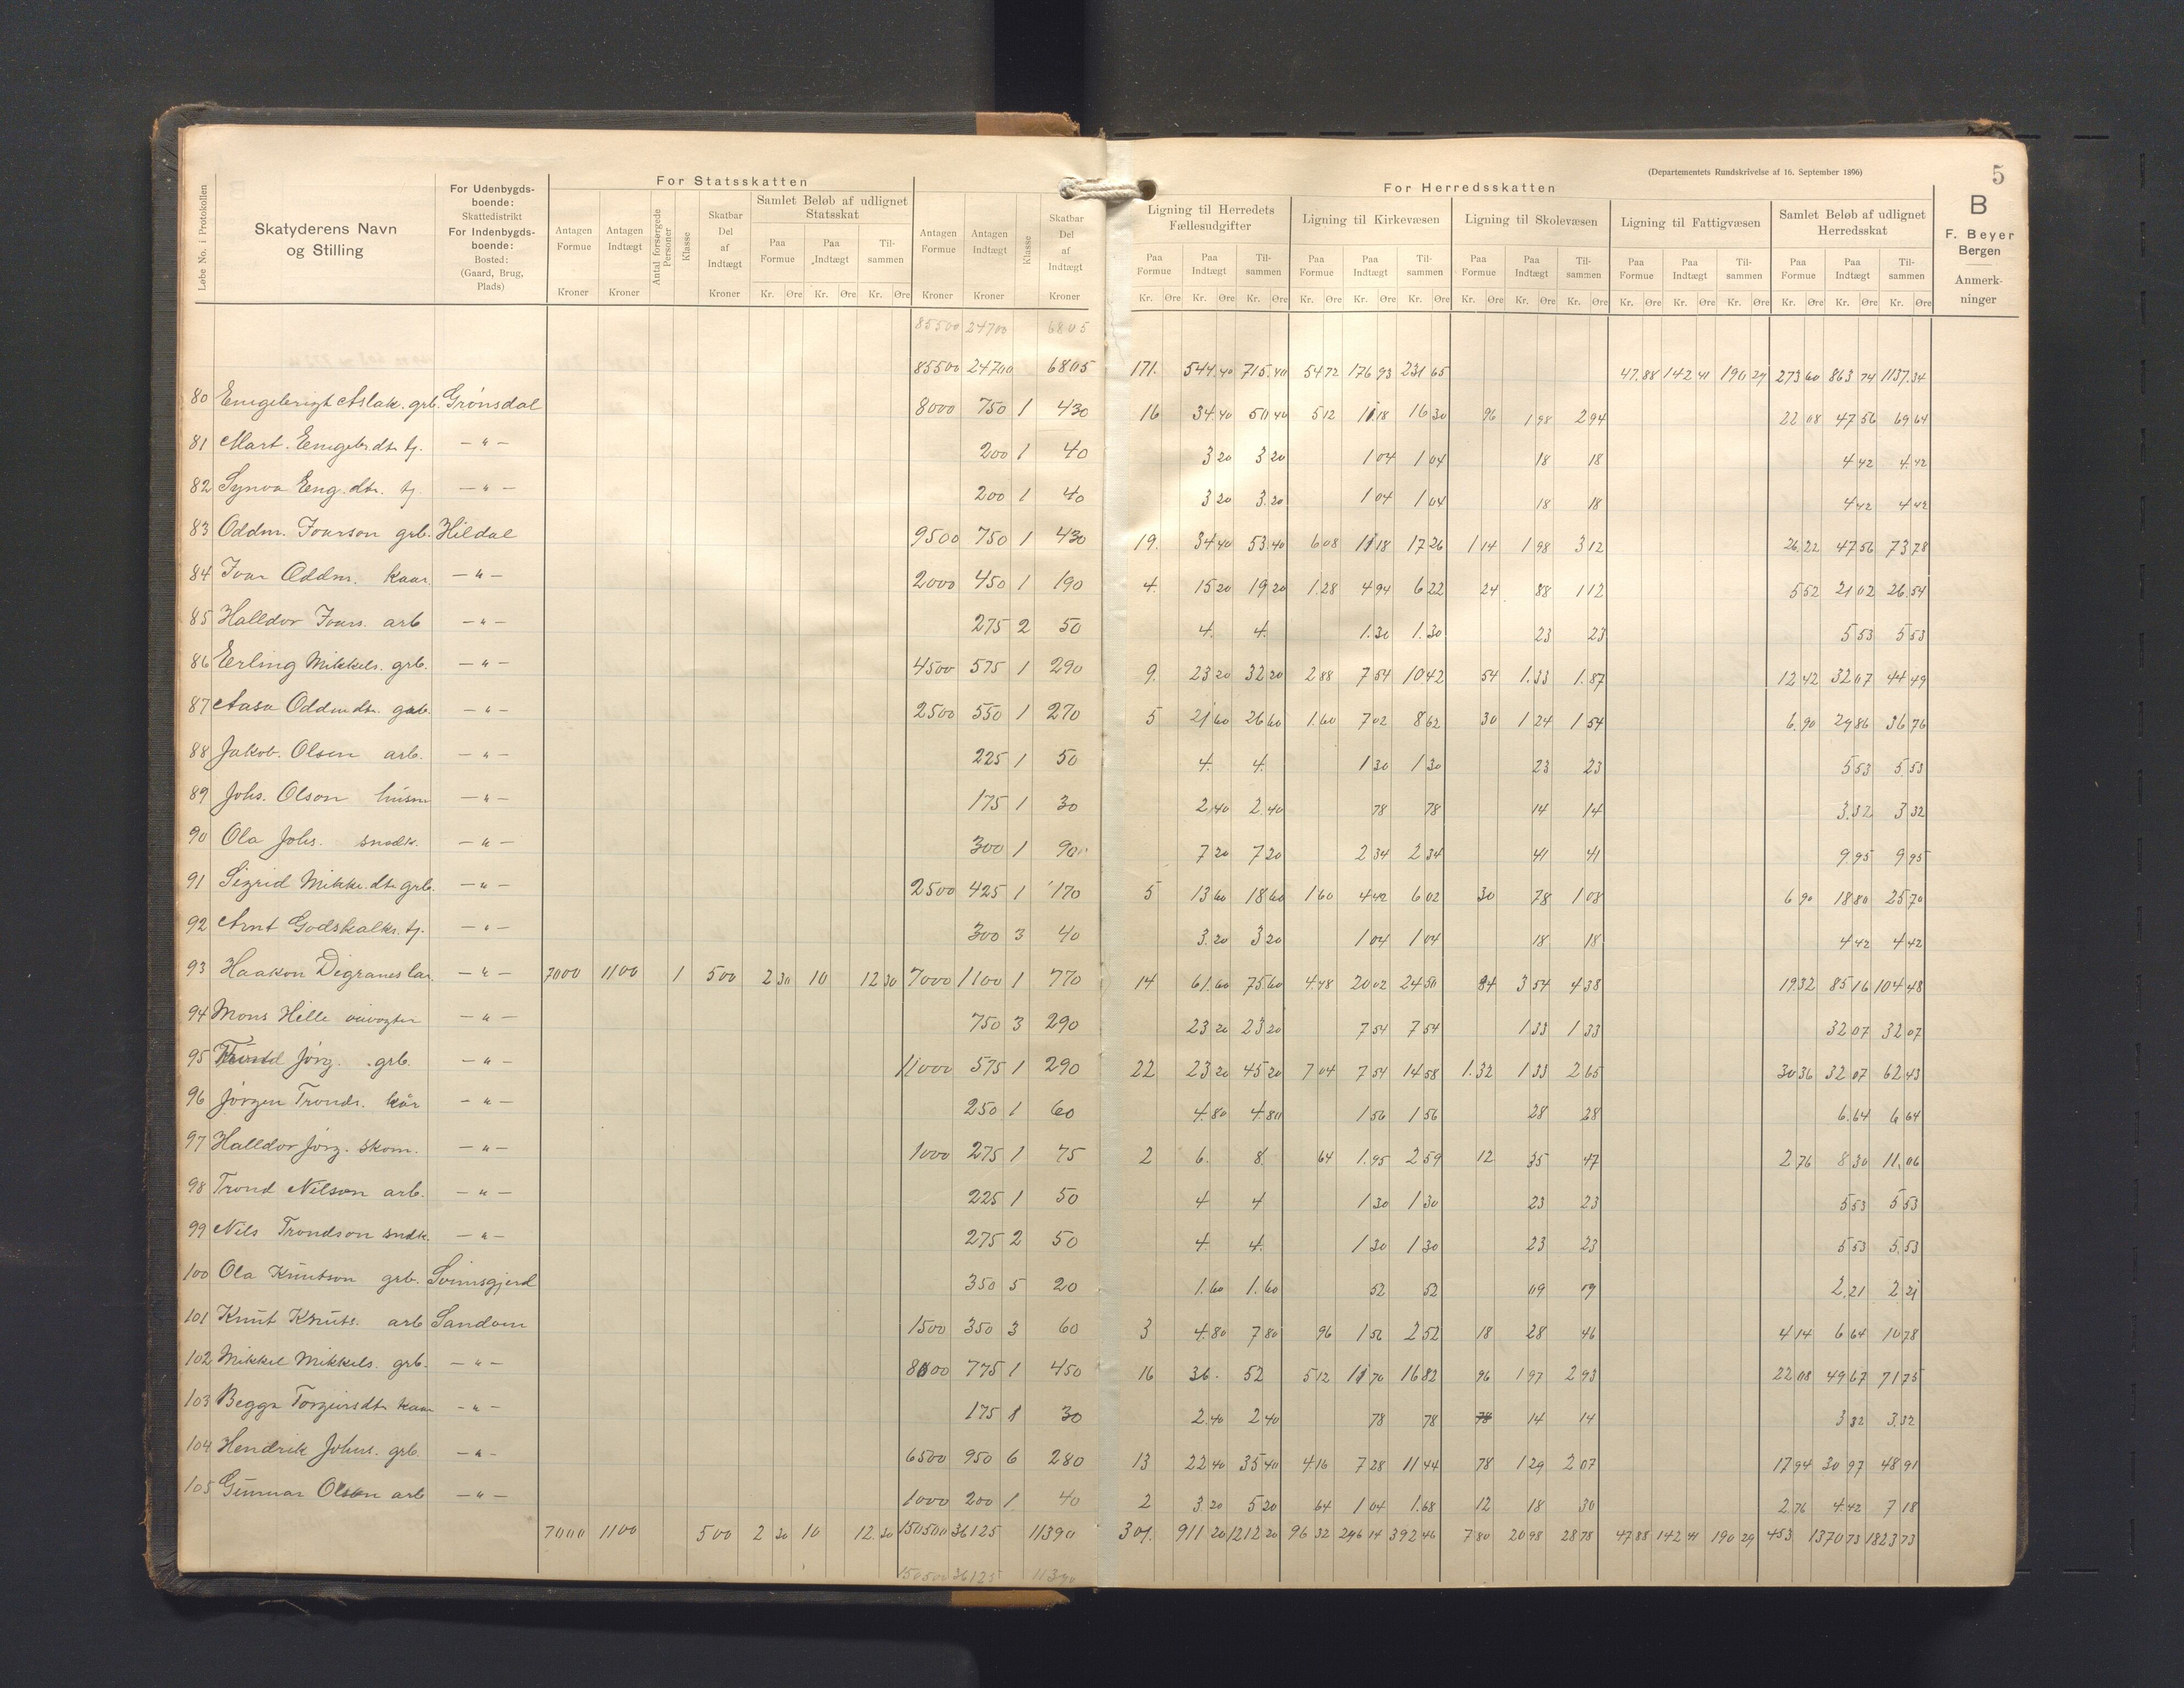 (Departementets Rundskrivelse af 16. September 1896) 5
For Statsskatten For Herredsskatten
Løbe No. i Protokollen
Skatyderens Navn og Stilling
For Udenbygds-boende: Skattedistrikt
For Indenbygds-boende: Bosted: (Gaard, Brug, Plads)
Antagen Formue Kroner
Antagen Indtægt Kroner
Antal forsørgede Personer
Klasse
Skatbar Del af Indtægt Kroner
Samlet Beløb af udlignet Statsskat
Paa Formue Kr. Øre Paa Indtægt Kr. Øre Til-sammen Kr. Øre
Antagen Formue Kroner
Antagen Indtægt Kroner
Klasse
Skatbar Del af Indtægt Kroner
Ligning til Herredets Fællesudgifter
Paa Formue Kr. Øre Paa Indtægt Kr. Øre Til-sammen Kr. Øre
Ligning til Kirkevæsen
Paa Formue Kr. Øre Paa Indtægt Kr. Øre Til-sammen Kr. Øre
Ligning til Skolevæsen
Paa Formue Kr. Øre Paa Indtægt Kr. Øre Til-sammen Kr. Øre
Ligning til Fattigvæsen
Paa Formue Kr. Øre Paa Indtægt Kr. Øre Til-sammen Kr. Øre
Samlet Beløb af udlignet Herredsskat
Paa Formue Kr. Øre Paa Indtægt Kr. Øre Til-sammen Kr. Øre
B
F. Beyer
Bergen
Anmerk-ninger
85500 24700 6805
85500 24700 6805 171. 544.40 715.40 54 72 176 93 231 65 47.88 142 41 190 29 273 60 863 74 1137.34
80 Engebrigt Aslak. grb. Grønsdal 8000 750 1 430 16 34 40 50 40 5 12 11 18 16 30 96 1 98 2 94 22 08 47 56 69 64
81 Mart. Engebr.dtr. tj. -"- 200 1 40 3 20 3 20 1 04 1 04 18 18 4 42 4.42
82 Synva Eng.dtr. tj. -"- 200 1 40 3 20 3.20 1 04 1 04 18 18 4 42 4 42
83 Oddm. Ivarson grb. Hildal 9500 750 1 430 19. 34 40 53.40 6 08 11 18 17 26 1 14 1 98 3 12 26.22 47 56 73 78
84 Ivar Oddm. kaar. -"- 2000 450 1 190 4. 15 20 19 20 1.28 4 94 6 22 24 88 1 12 5 52 21 02 26.54
85 Halldor Ivars. arb -"- 275 2 50 4. 4. 1.30 1.30 23 23 5 53 5 53
86 Erling Mikkels. grb. -"- 4500 575 1 290 9. 23 20 32 20 2 88 7 54 10 42 54 1.33 1.87 12 42 32 07 44 49
87 Aasa Oddmdtr. grb. -"- 2500 550 1 270 5 21 60 26 60 1.60 7 02 8 62 30 1 24 1 54 6.90 29 86 36 76
88 Jakob. Olsen arb. -"- 225 1 50 4. 4. 1 30 1 30 23 23 5 53 5.53
89 Johs. Olson husm -"- 175 1 30 2 40 2.40 78 78 14 14 3.32 3 32
90 Ola Johs. snedk. -"- 300 1 90 7 20 7 20 2 34 2 34 41 41 9.95 9 95
91 Sigrid Mikke.dtr grb. -"- 2500 425 1 170 5 13 60 18 60 1 60 4 42 6 02 30 78 1 08 6 90 18 80 25 70
92 Arnt Godskalks. tj. -"- 300 3 40 3.20 3 20 1 04 1 04 18 18 4 42 4 42
93 Haakon Digranes lær. -"- 7000 1100 1 500 2 30 10 12 30 7000 1100 1 770 14 61.60 75 60 4.48 20 02 24 50 84 3 54 4 38 19 32 85 16 104 48
94 Mons Hille veivogter -"- 750 3 290 23 20 23 20 7 54 7 54 1 33 1 33 32 07 32 07
95 Trond Jørg. grb. -"- 11000 575 1 290 22 23 20 45 20 7 04 7 54 14 58 1.32 1 33 2 65 30 36 32 07 62 43
96 Jørgen Tronds. kår -"- 250 1 60 4.80 4 80 1 56 1 56 28 28 6.64 6 64
97 Halldor Jørg. skom. -"- 1000 275 1 75 2 6. 8. 64 1.95 2 59 12 35 47 2 76 8 30 11.06
98 Trond Nilson arb. -"- 225 1 50 4 4 1 30 1 30 23 23 5 53 5 53
99 Nils Trondson sndk. -"- 275 2 50 4. 4. 1 30 1 30 23 23 5 53 5.53
100 Ola Knutson grb. Svinsgjerd 350 5 20 1.60 1.60 52 52 09 09 2.21 2 21
101 Knut Knuts. arb Sandven 1500 350 3 60 3 4.80 7 80 96 1 56 2 52 18 28 46 4 14 6 64 10 78
102 Mikkel Mikkels. grb. -"- 8000 775 1 450 16 36. 52 5 12 11 70 16 82 96 1 97 2 93 22 08 49 67 71 75
103 Begga Torgeirsdtr kaar -"- 175 1 30 2.40 2 40 78 78 78 14 14 3 32 3.32
104 Hendrik Johns. grb. -"- 6500 950 6 280 13 22 40 35 40 4 16 7 28 11 44 78 1 29 2 07 17 94 30 97 48 91
105 Gunnar Olsen arb -"- 1000 200 1 40 2 3 20 5 20 64 1 04 1.68 12 18 30 2.76 4.42 7 18
7000 1100 500 2 30 10 12.30 150500 36125 11390 301. 911 20 1212 20 96 32 296 14 392 46 7 80 20 98 28 78 47 88 142 41 190 29 453 1370 73 1823 73
150500 36125 11390